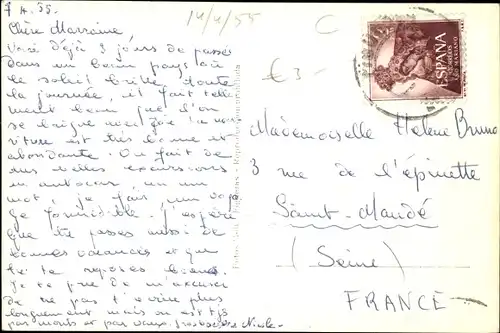 7 4.55.
14/4/55
C
€ 3 -
Chère Marraine
Voici déjà 3 jours de passés
dans un beau pays où
le soleil brille toute
la journée, il fait telle
ment bon que l'on
se baigne
nourriture est très bonne et
abondante. On fait de
très belles excursions
en autocar, en un
mot, je fais un voya
ge formidable. J'espère
que tu passes aussi de
bonnes vacances et que
tu te reposes bien.
Je te prie de m'excuser
de ne pas t'écrire plus
longuement mais on est
par monts et par vaux. Nicole
ESPAÑA
CORREOS
AÑO MARIANO
Mademoiselle Helene Bruno
3 rue de l'épinette
Saint-Mandé
(Seine)
FRANCE